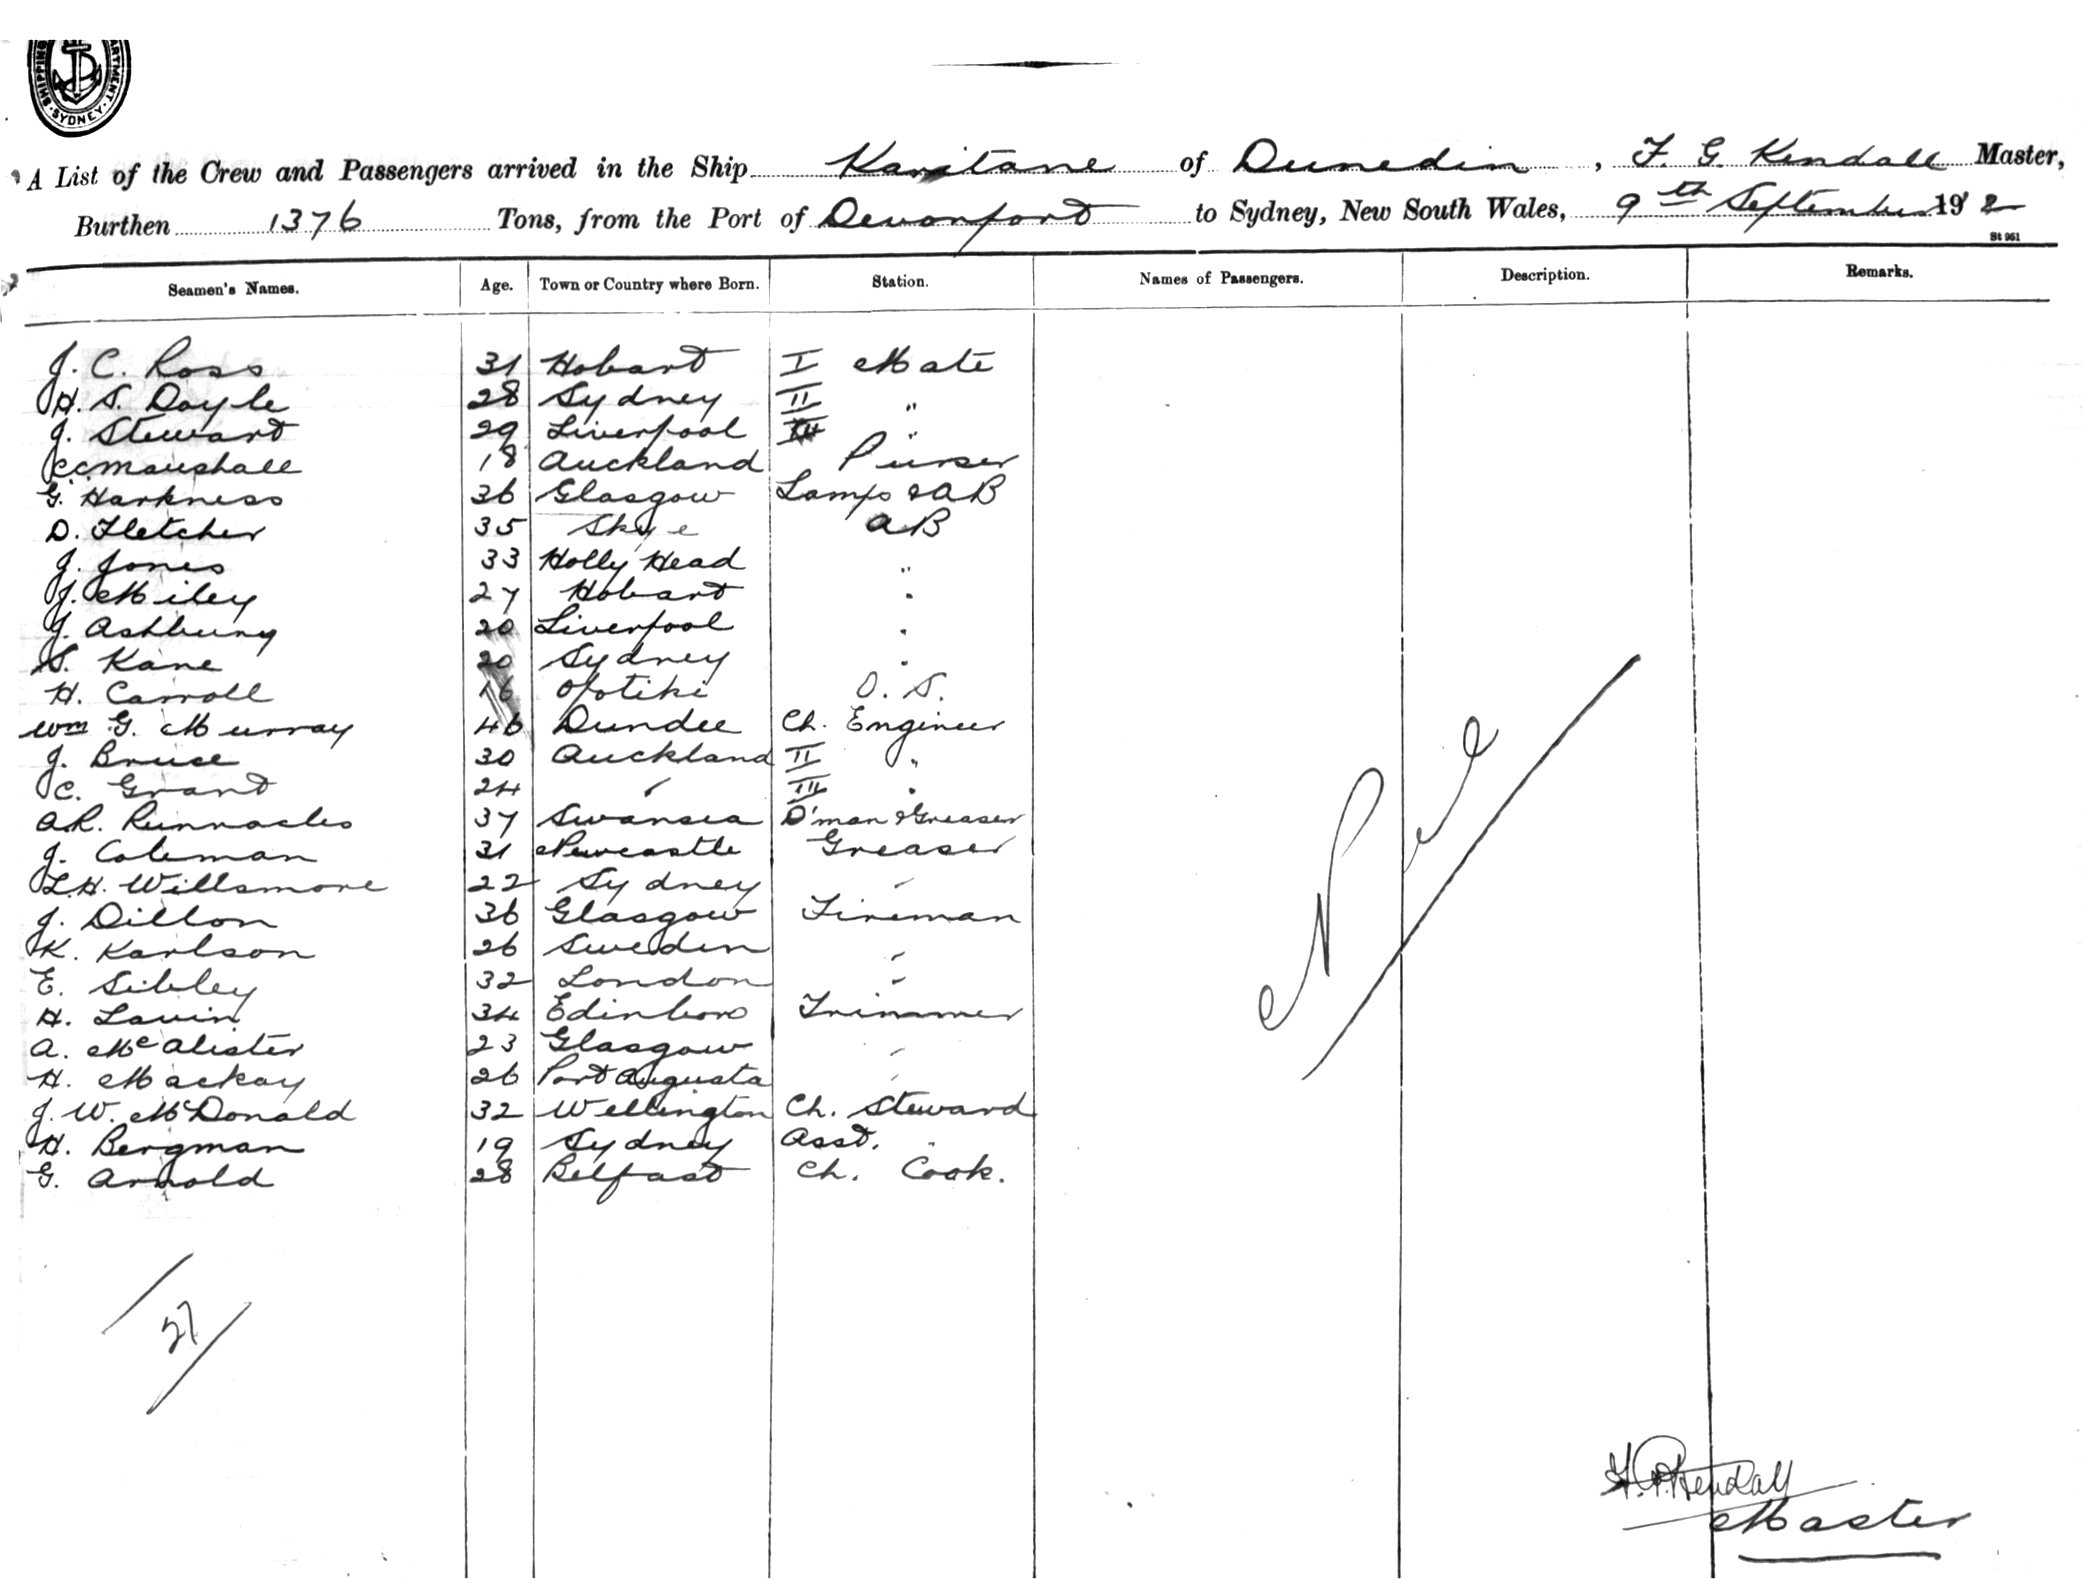 SHIPPING DEPARTMENT. SYDNEY
A List of the Crew and Passengers arrived in the Ship Karitane of Dunedin, F. G. Kendall Master,
Burthen 1376 Tons, from the Port of Devonport to Sydney, New South Wales, 9th September 19 2
St 961
Seamen's Names. Age. Town or Country where Born. Station. Names of Passengers. Description. Remarks.
J. C. Ross 31 Hobart I Mate
H. S. Doyle 28 Sydney II "
J. Stewart 29 Liverpool III "
C C Marshall 18 Auckland Purser
G. Harkness 36 Glasgow Lamps & AB
D. Fletcher 35 Skye AB
J. Jones 33 Holly Head "
J. Miley 27 Hobart "
J. Ashbury 20 Liverpool "
S. Kane 20 Sydney "
H. Carroll 16 Opotiki O. S.
Wm G. Murray 46 Dundee Ch. Engineer
J. Bruce 30 Auckland II "
C. Grant 24 " III "
A.R. Runnacles 37 Swansea D'man & Greaser
J. Coleman 31 Newcastle Greaser
L.H. Willsmore 22 Sydney "
J. Dillon 36 Glasgow Fireman
K. Karlson 26 Sweden "
E. Sibley 32 London "
H. Lavin 34 Edinboro Trimmer
A. McAlister 23 Glasgow "
H. Mackay 26 Port Augusta "
J. W. McDonald 32 Wellington Ch. Steward
H. Bergman 19 Sydney Asst. "
G. Arnold 28 Belfast Ch. Cook.
Nil
27
F. G. Kendall
Master